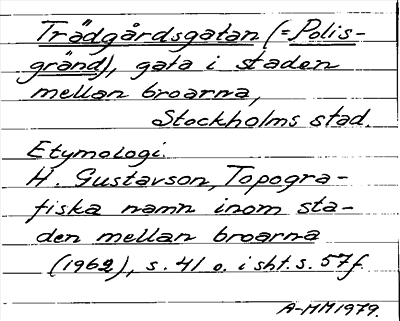 Trädgårdsgatan (= Polis-
gränd), gata i staden
mellan broarna,
Stockholms stad.
Etymologi.
H. Gustavson, Topogra-
fiska namn inom sta-
den mellan broarna
(1962), s. 41 o. i sht. s. 57f.
A-MM 1979.